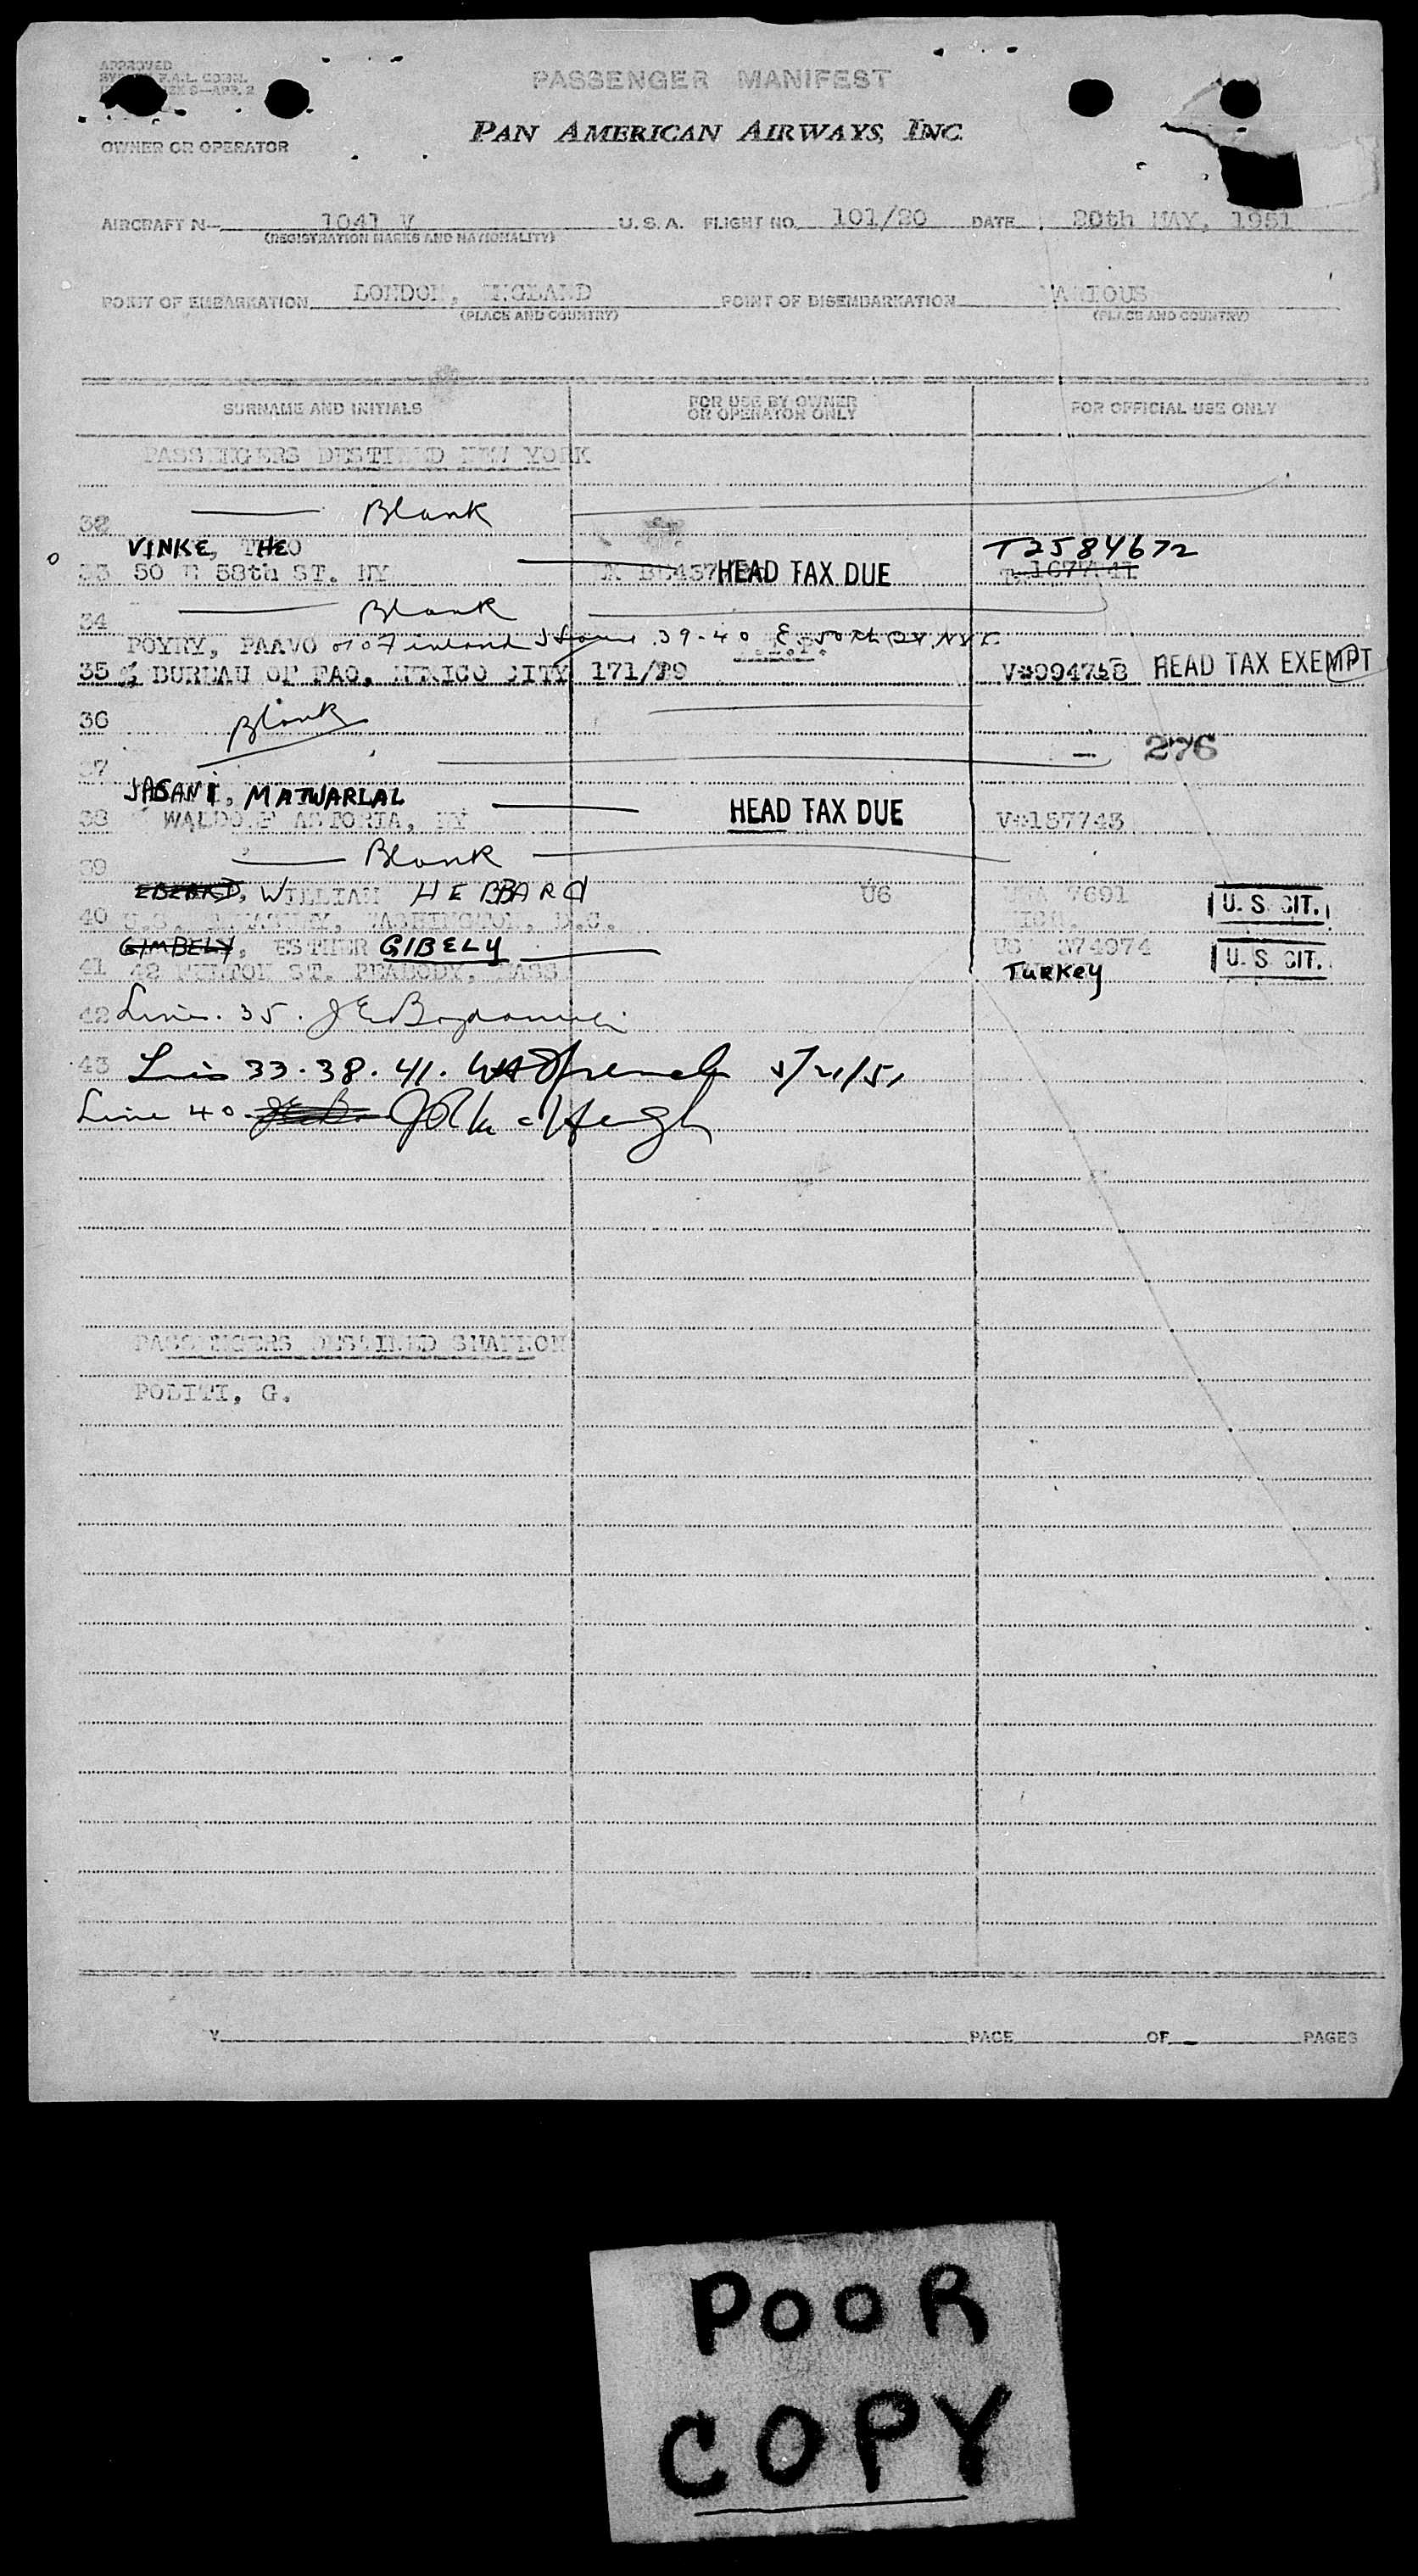 APPROVED
PASSENGER MANIFEST
PAN AMERICAN AIRWAYS, INC.
OWNER OR OPERATOR
AIRCRAFT N— 1041 V U. S. A. FLIGHT NO. 101/20 DATE 20th MAY, 1951
(REGISTRATION MARKS AND NATIONALITY)
POINT OF EMBARKATION LONDON, ENGLAND POINT OF DISEMBARKATION VARIOUS
(PLACE AND COUNTRY) (PLACE AND COUNTRY)
SURNAME AND INITIALS FOR USE BY OWNER OR OPERATOR ONLY FOR OFFICIAL USE ONLY
PASSENGERS DESTINED NEW YORK
32 Blank
VINKE, THEO T2584672
33 50 E 58th ST. NY HEAD TAX DUE
34 Blank
POYRY, PAAVO 39-40 E 50th NYC
35 % BUREAU OF FAO, MEXICO CITY 171/P9 V#994758 HEAD TAX EXEMPT
36 Blank
37 — 276
JASANI, MATWARLAL
38 WALDORF ASTORIA, NY HEAD TAX DUE V#157743
39 Blank
EBERARD, WILLIAM HEBBARD U6 USA 7691
40 WASHINGTON, D.C. U. S. CIT.
GIMBELY, ESTHER GIBELY US 374974
41 42 ST. PEABODY, MASS Turkey U. S. CIT.
42 Line. 35.
43 33. 38. 41. 5/21/51
Line 40.
PASSENGERS DESTINED SHANNON
POLITI, G.
PAGE OF PAGES
POOR
COPY